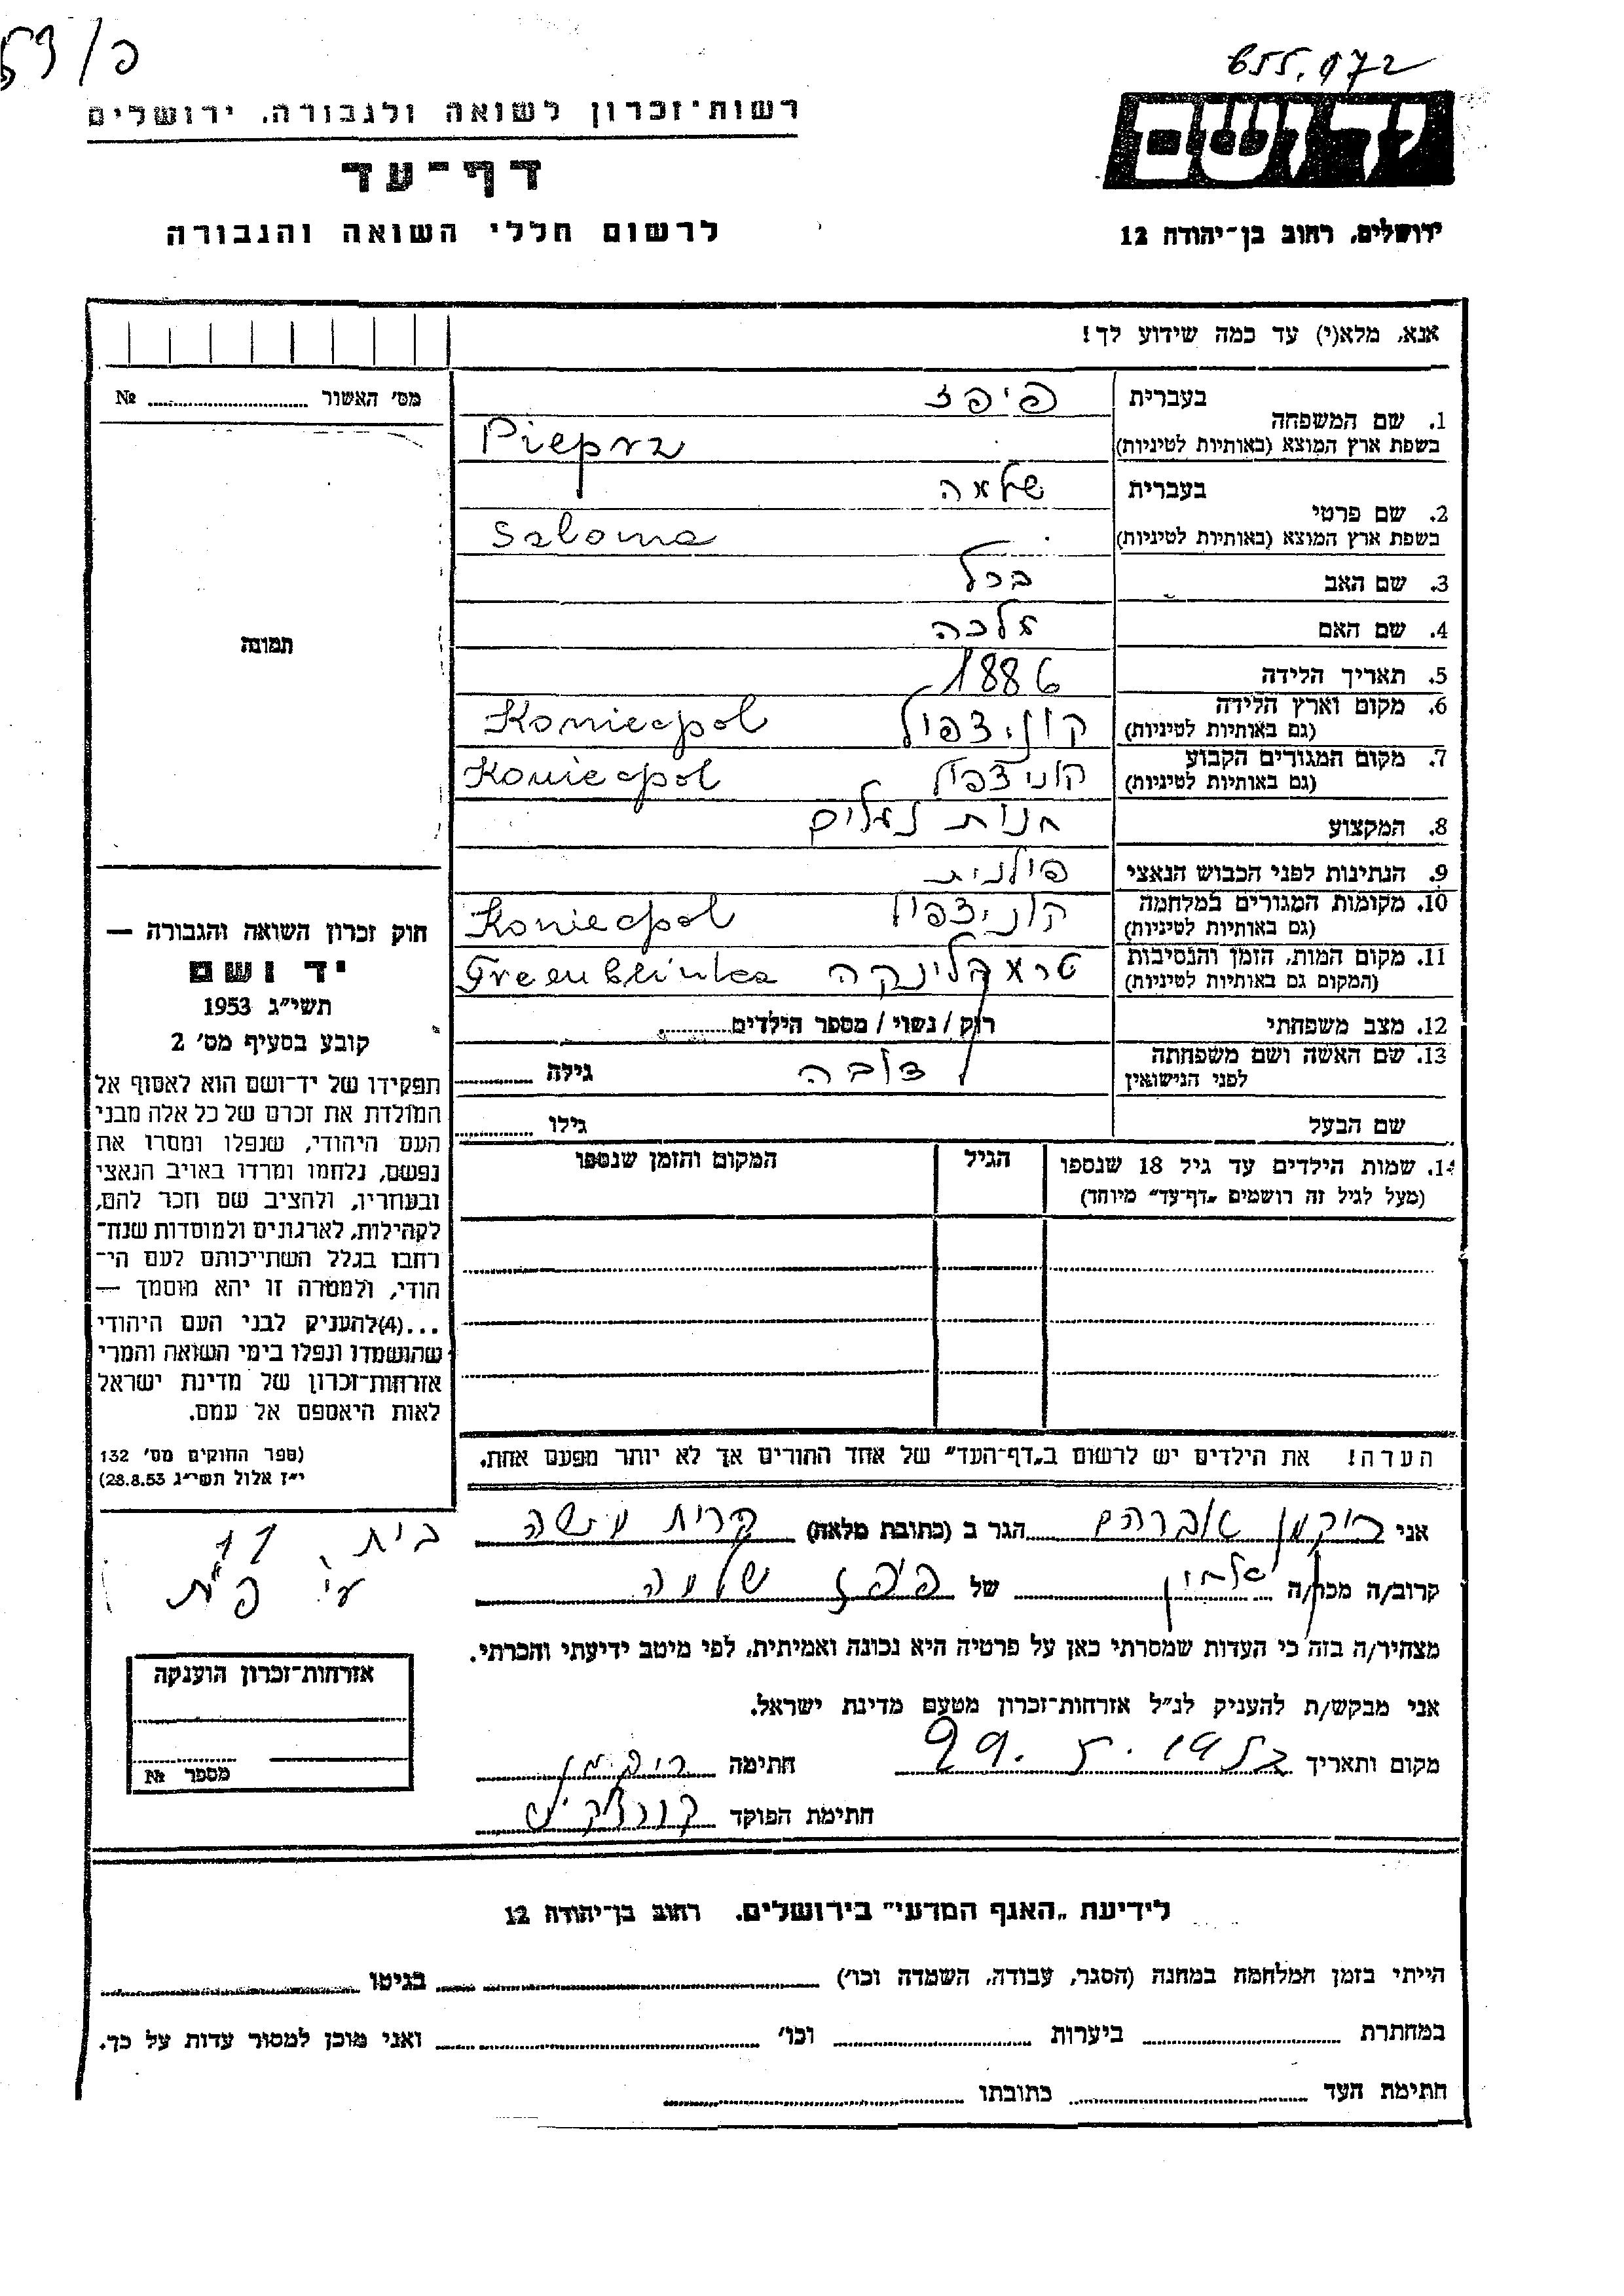 פ/53
655.072
יד ושם
ירושלים, רחוב בן־יהודה 12
רשות־זכרון לשואה ולגבורה, ירושלים
דף־עד
לרשום חללי השואה והגבורה
אנא, מלא(י) עד כמה שידוע לך!
מס׳ האשור ........ №
תמונה
1. שם המשפחה בעברית פיפז
בשפת ארץ המוצא (באותיות לטיניות) Pieprz
2. שם פרטי בעברית שלמה
בשפת ארץ המוצא (באותיות לטיניות) Saloma
3. שם האב
4. שם האם מלכה
5. תאריך הלידה 1886
6. מקום וארץ הלידה קוניצפול Koniecpol
(גם באותיות לטיניות)
7. מקום המגורים הקבוע קוניצפול Koniecpol
(גם באותיות לטיניות)
8. המקצוע חנות נעלים
9. הנתינות לפני הכבוש הנאצי פולנית
10. מקומות המגורים במלחמה קוניצפול Koniecpol
(גם באותיות לטיניות)
11. מקום המות, הזמן והנסיבות טראבלינקה
(המקום גם באותיות לטיניות)
12. מצב משפחתי רוק / נשוי / מספר הילדים........
13. שם האשה ושם משפחתה גילה ........
לפני הנישואין
שם הבעל גילו ........
14. שמות הילדים עד גיל 18 שנספו הגיל המקום והזמן שנספו
(מעל לגיל זה רושמים „דף־עד״ מיוחד)
הערה! את הילדים יש לרשום ב„דף־העד״ של אחד ההורים אך לא יותר מפעם אחת.
חוק זכרון השואה והגבורה —
יד ושם
תשי״ג 1953
קובע בסעיף מס׳ 2
תפקידו של יד־ושם הוא לאסוף אל
המולדת את זכרם של כל אלה מבני
העם היהודי, שנפלו ומסרו את
נפשם, נלחמו ומרדו באויב הנאצי
ובעוזריו, ולהציב שם וזכר להם,
לקהילות, לארגונים ולמוסדות שנח־
רבו בגלל השתייכותם לעם הי־
הודי, ולמטרה זו יהא מוסמך —
...(4)להעניק לבני העם היהודי
שהושמדו ונפלו בימי השואה והמרי
אזרחות־זכרון של מדינת ישראל
לאות היאספם אל עמם.
(ספר החוקים מס׳ 132
י״ז אלול תשי״ג 28.8.53)
אני אברהם הגר ב (כתובת מלאה) קרית
בית 11
קרוב/ה מכר/ה של פיפז שלמה
מצהיר/ה בזה כי העדות שמסרתי כאן על פרטיה היא נכונה ואמיתית, לפי מיטב ידיעתי והכרתי.
אני מבקש/ת להעניק לנ״ל אזרחות־זכרון מטעם מדינת ישראל.
מקום ותאריך חתימה
חתימת הפוקד
אזרחות־זכרון הוענקה
מספר №
לידיעת „האגף המדעי״ בירושלים, רחוב בן־יהודה 12
הייתי בזמן המלחמה במחנה (הסגר, עבודה, השמדה וכו׳) ........ בגיטו ........
במחתרת ........ ביערות ........ וכו׳ ........ ואני מוכן למסור עדות על כך.
חתימת העד ........ כתובתו ........